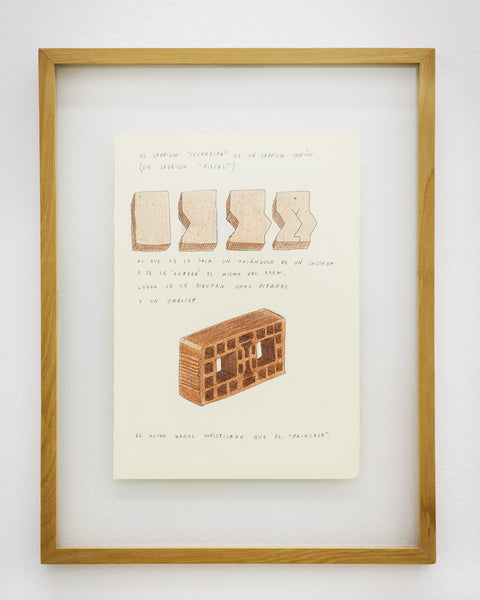 EL LADRILLO "CUCHARITA" ES UN LADRILLO COMÚN
(UN LADRILLO "FISCAL")
AL QUE SE LE SACA UN TRIÁNGULO DE UN COSTADO
Y SE LE AGREGA EL MISMO DEL OTRO.
LUEGO SE LE DIBUJAN UNAS PIERNAS
Y UN OMBLIGO.
ES MUCHO MENOS SOFISTICADO QUE EL "PRINCESA".